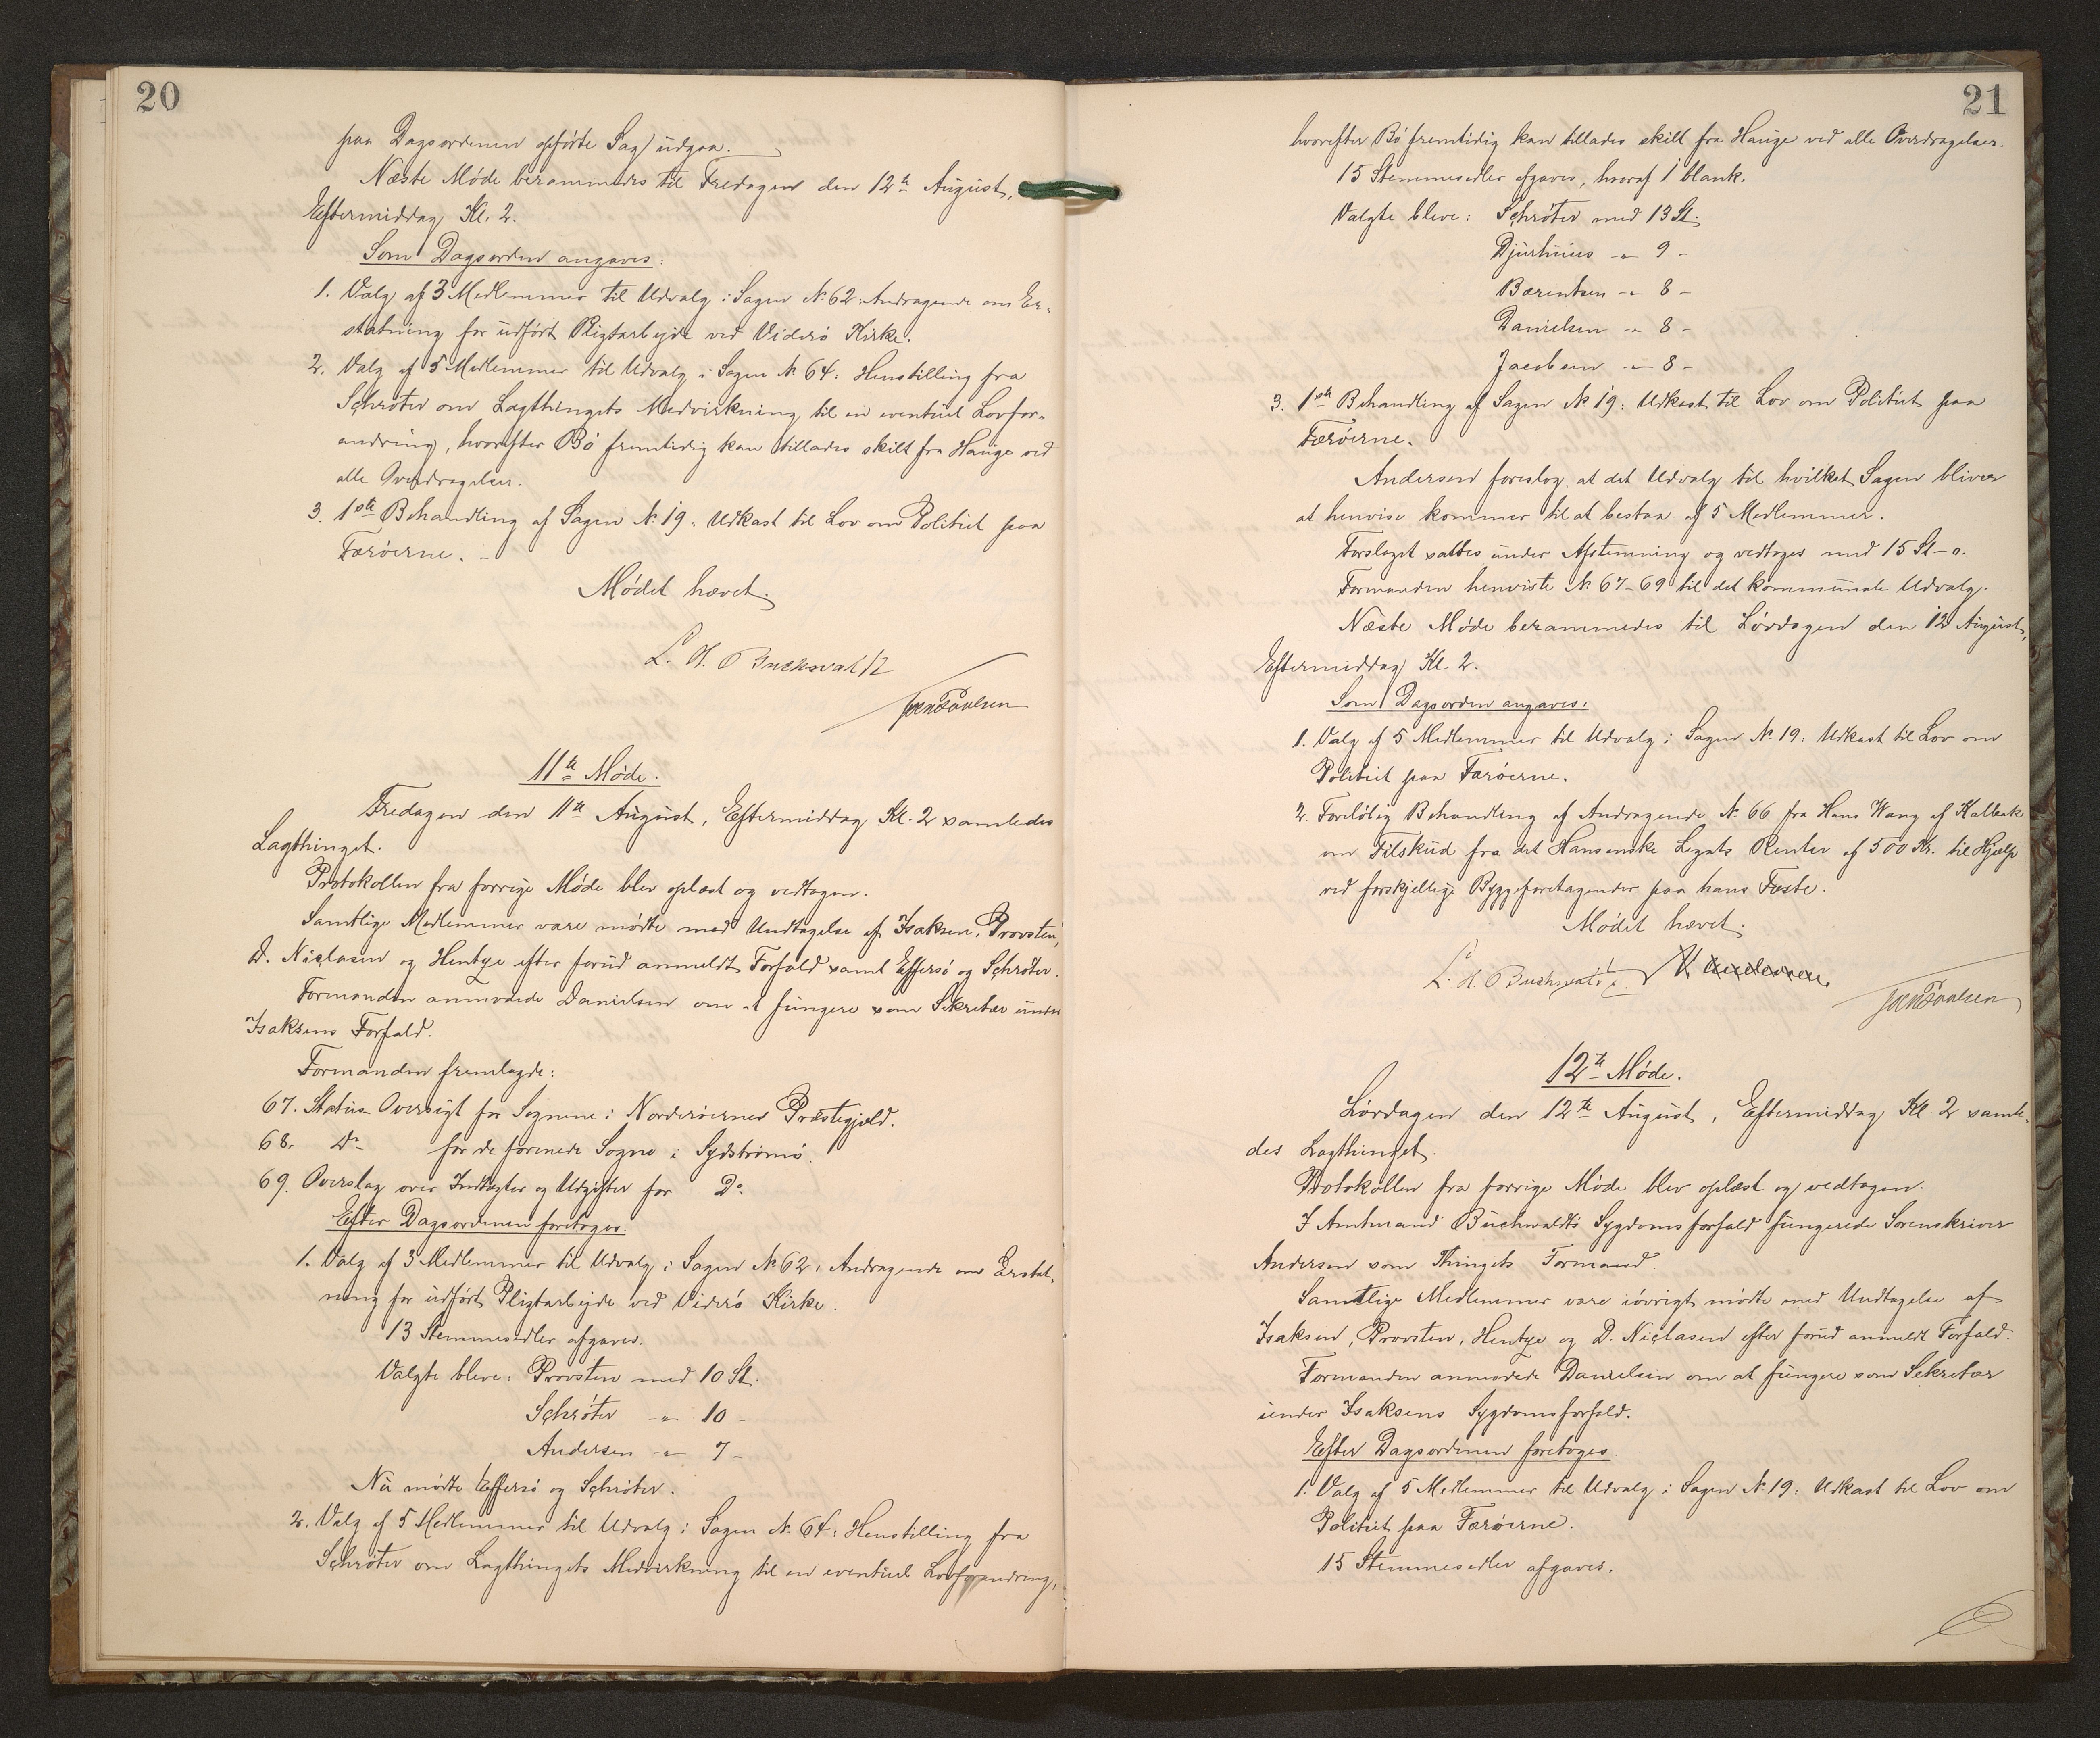 20
paa Dagsordenen opførte Sag) udgaa.
Næste Møde berammedes til Fredagen den 12te August,
Eftermiddag Kl. 2.
Som Dagsorden angaves:
1. Valg af 3 Medlemmer til Udvalg i Sagen No 62: Andragende om Er-
statning for udført Pligtarbejde ved Viderø Kirke.
2. Valg af 5 Medlemmer til Udvalg i Sagen No 64: Henstilling fra
Schrøter om Lagthingets Medvirkning til en eventuel Lovfor-
andring, hvorefter Bø fremtidig kan tillades skilt fra Hauge ved
alle Overdragelser.
3. 1ste Behandling af Sagen No 19: Udkast til Lov om Politiet paa
Færøerne. -
Mødet hævet.
L. H. Buchwaldt
Joen Poulsen
11te Møde.
Fredagen den 11te August, Eftermiddag Kl. 2 samledes
Lagthinget.
Protokollen fra forrige Møde blev oplæst og vedtagen.
Samtlige Medlemmer vare mødte med Undtagelse af Isaksen, Provsten,
D. Niclasen og Hentze efter forud anmeldt Forfald samt Effersø og Schrøter.
Formanden anmodede Danielsen om at fungere som Sekretær under
Isaksens Forfald.
Formanden fremlagde:
67. Status-Oversigt for Sognene i Norderøernes Præstegjæld.
68. Do for de forenede Sogne i Sydstrømø.
69. Overslag over Indtægter og Udgifter for Do
Efter Dagsordenen foretoges:
1. Valg af 3 Medlemmer til Udvalg i Sagen No 62: Andragende om Erstat-
ning for udført Pligtarbejde ved Viderø Kirke.
13 Stemmesedler afgaves.
Valgte bleve: Provsten med 10 St.
Schrøter -"- 10 -
Andersen -"- 7 -
Nu mødte Effersø og Schrøter.
2. Valg af 5 Medlemmer til Udvalg i Sagen No 64: Henstilling fra
Schrøter om Lagthingets Medvirkning til en eventuel Lovforandring,
21
hvorefter Bø fremtidig kan tillades skilt fra Hauge ved alle Overdragelser.
15 Stemmesedler afgaves, hvoraf 1 blank.
Valgte bleve: Schrøter med 13 St.
Djurhuus -"- 9 -
Bærentsen -"- 8 -
Danielsen -"- 8 -
Jacobsen -"- 8 -
3. 1ste Behandling af Sagen No 19: Udkast til Lov om Politiet paa
Færøerne.
Andersen foreslog, at det Udvalg til hvilket Sagen bliver
at henvise kommer til at bestaa af 5 Medlemmer.
Forslaget sattes under Afstemning og vedtoges med 15 St - 0.
Formanden henviste No 67-69 til det kommunale Udvalg.
Næste Møde berammedes til Lørdagen den 12 August,
Eftermiddag Kl. 2.
Som Dagsorden angaves:
1. Valg af 5 Medlemmer til Udvalg i Sagen No 19: Udkast til Lov om
Politiet paa Færøerne.
2. Foreløbig Behandling af Andragende No 66 fra Hans Wang af Kalbak
om Tilskud fra det Hansenske Legats Renter af 500 Kr. til Hjælp
ved forskjellige Byggeforetagender paa hans Fæste.
Mødet hævet.
L. H. Buchwaldt. Andersen.
Joen Poulsen
12te Møde.
Lørdagen den 12te August, Eftermiddag Kl. 2 samle-
des Lagthinget.
Protokollen fra forrige Møde blev oplæst og vedtagen.
I Amtmand Buchwaldts Sygdomsforfald fungerede Sorenskriver
Andersen som Thingets Formand.
Samtlige Medlemmer vare iøvrigt mødte med Undtagelse af
Isaksen, Provsten, Hentze og D. Niclasen efter forud anmeldt Forfald.
Formanden anmodede Danielsen om at fungere som Sekretær
under Isaksens Sygdomsforfald.
Efter Dagsordenen foretoges.
1. Valg af 5 Medlemmer til Udvalg i Sagen No 19: Udkast til Lov om
Politiet paa Færøerne.
15 Stemmesedler afgaves.